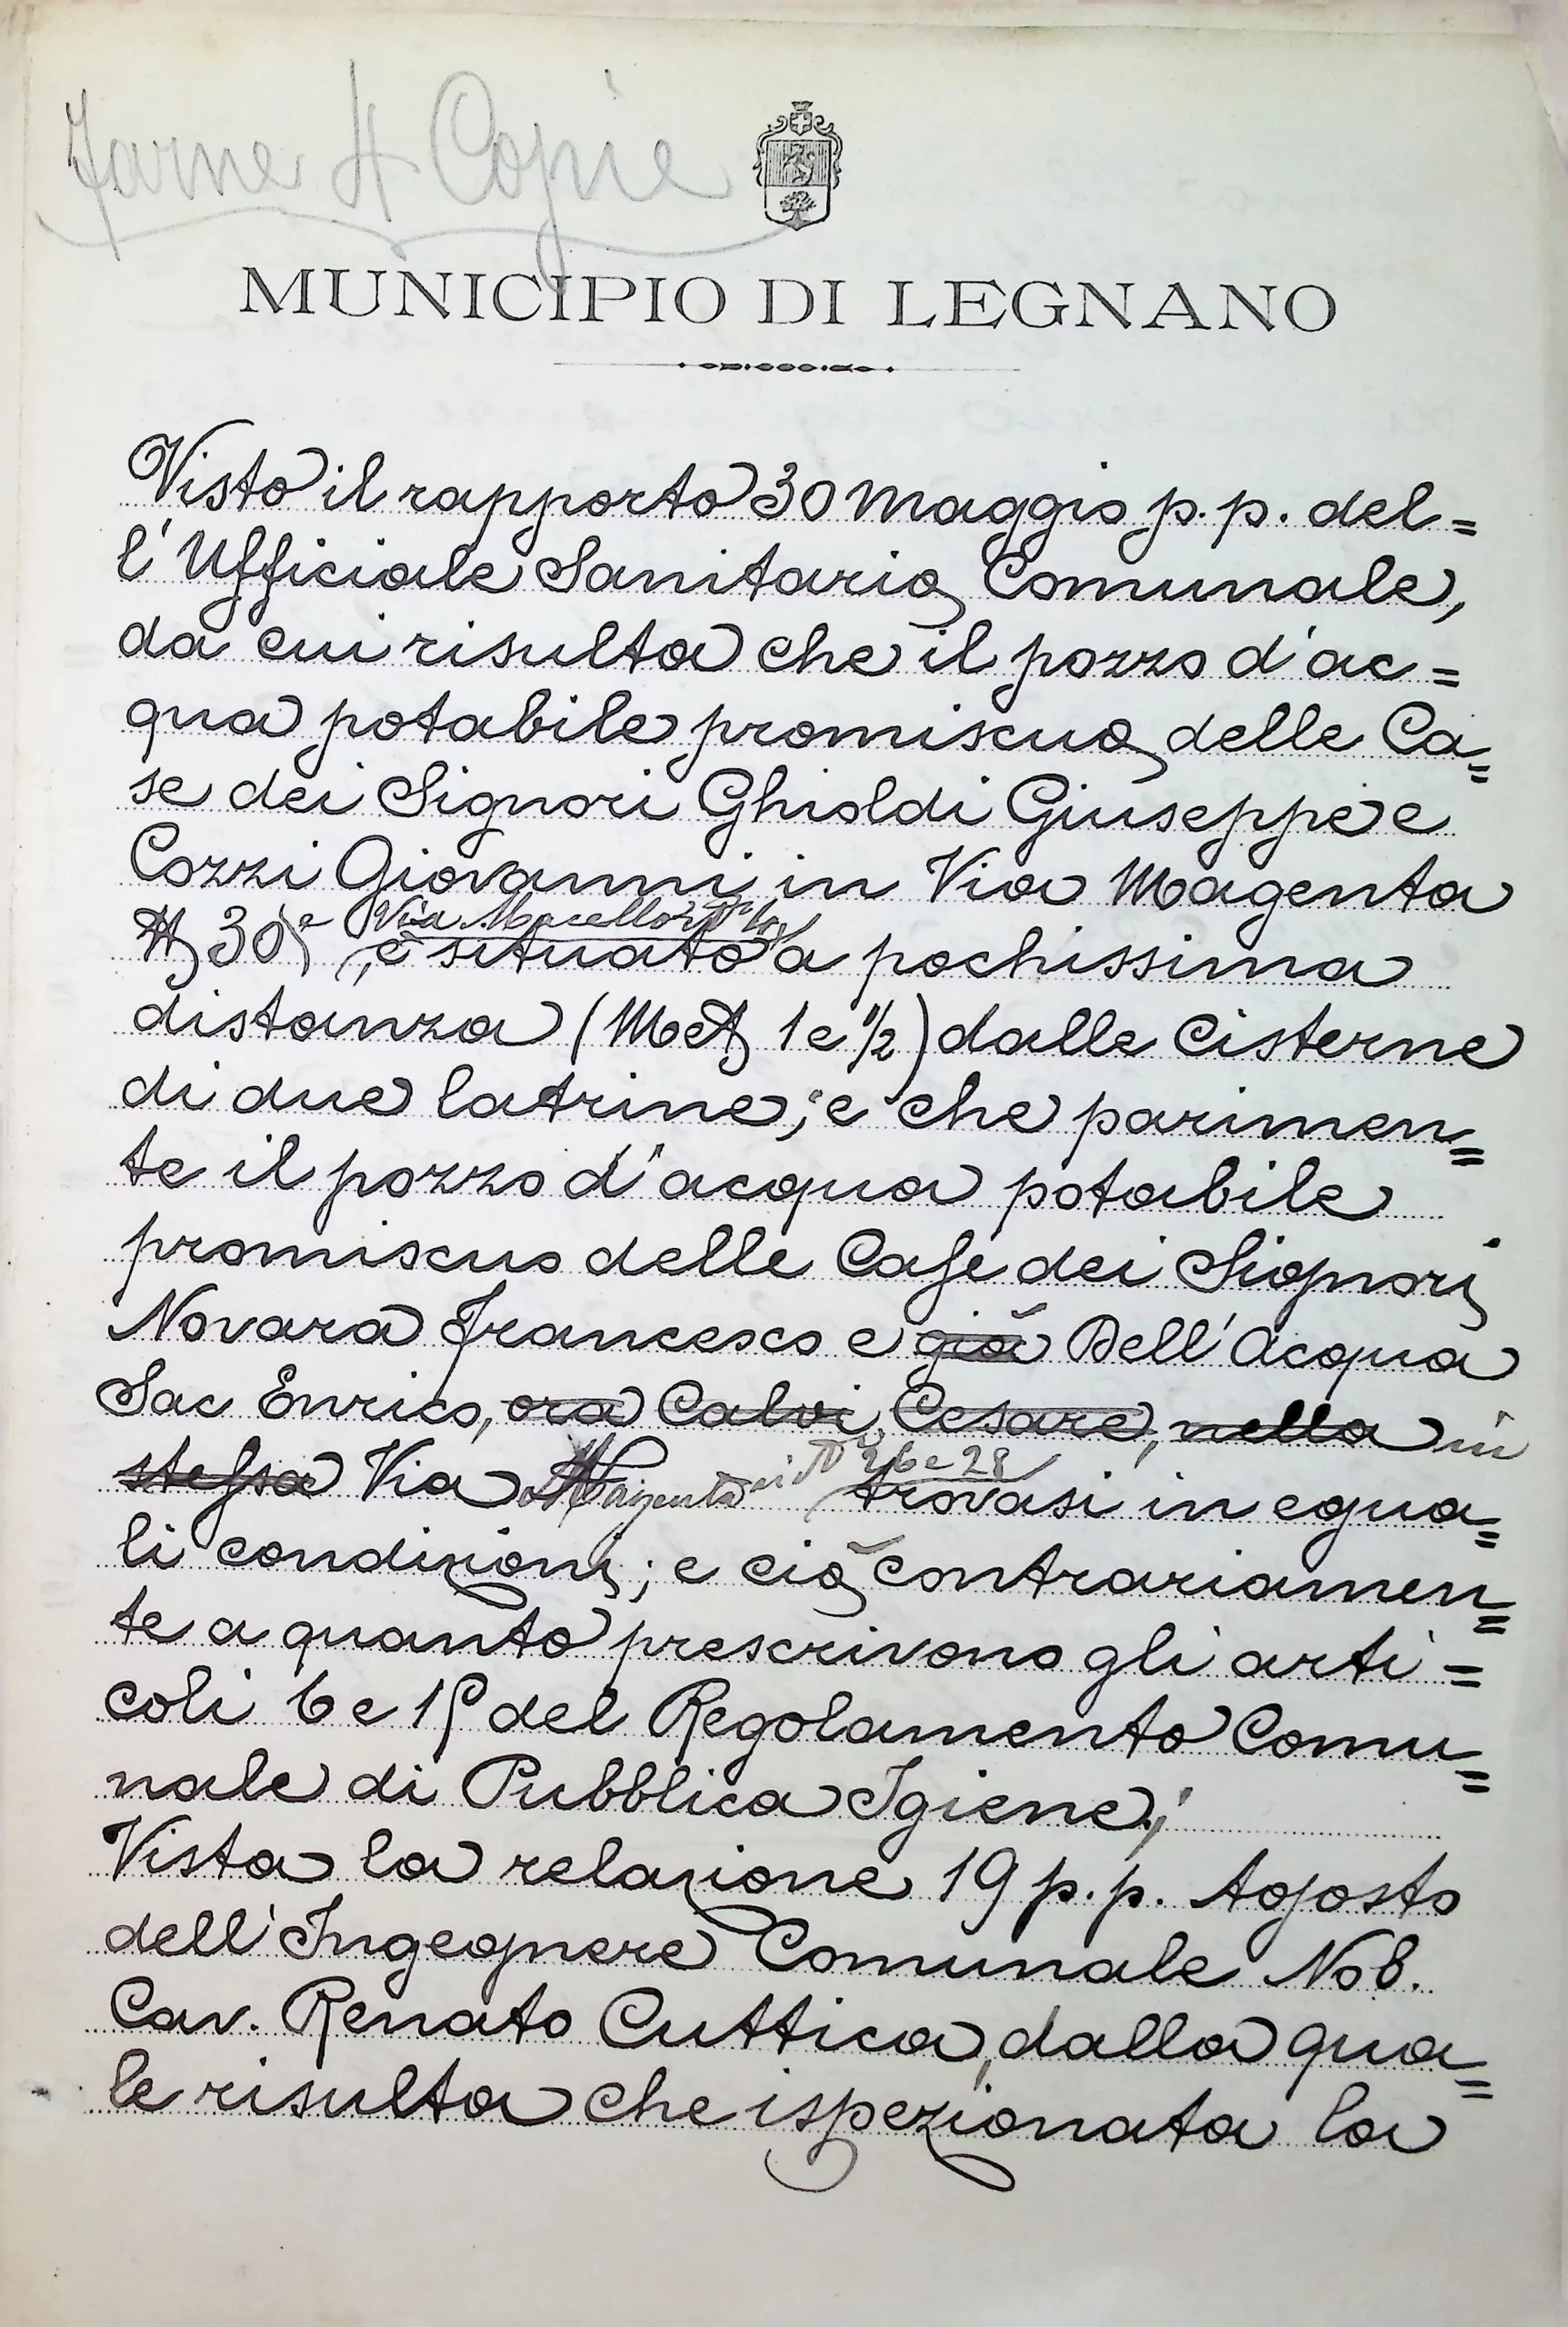 Farne 4 Copie
MUNICIPIO DI LEGNANO
Visto il rapporto 30 Maggio p.p. del=
l'Ufficiale Sanitario Comunale,
da cui risulta che il pozzo d'ac=
qua potabile promiscuo delle Ca=
se dei Signori Ghioldi Giuseppe e
Cozzi Giovanni in Via Magenta
Via Macello
N 30 e, è situato a pochissima
distanza (Met 1 e 1/2) dalle cisterne
di due latrine; e che parimen=
te il pozzo d'acqua potabile
promiscuo delle Case dei Signori
Novara Francesco e già Dell'Acqua
Sac Enrico, ora Calvi Cesare, nella in
stessa Via Magenta ai N 26 e 28 trovasi in egua=
li condizioni; e ciò contrariamen=
te a quanto prescrivono gli arti=
coli 6 e del Regolamento Comu=
nale di Pubblica Igiene;
Vista la relazione 19 p.p. Agosto
dell'Ingegnere Comunale Nob.
Cav. Renato Cuttica, dalla qua=
le risulta che ispezionata la